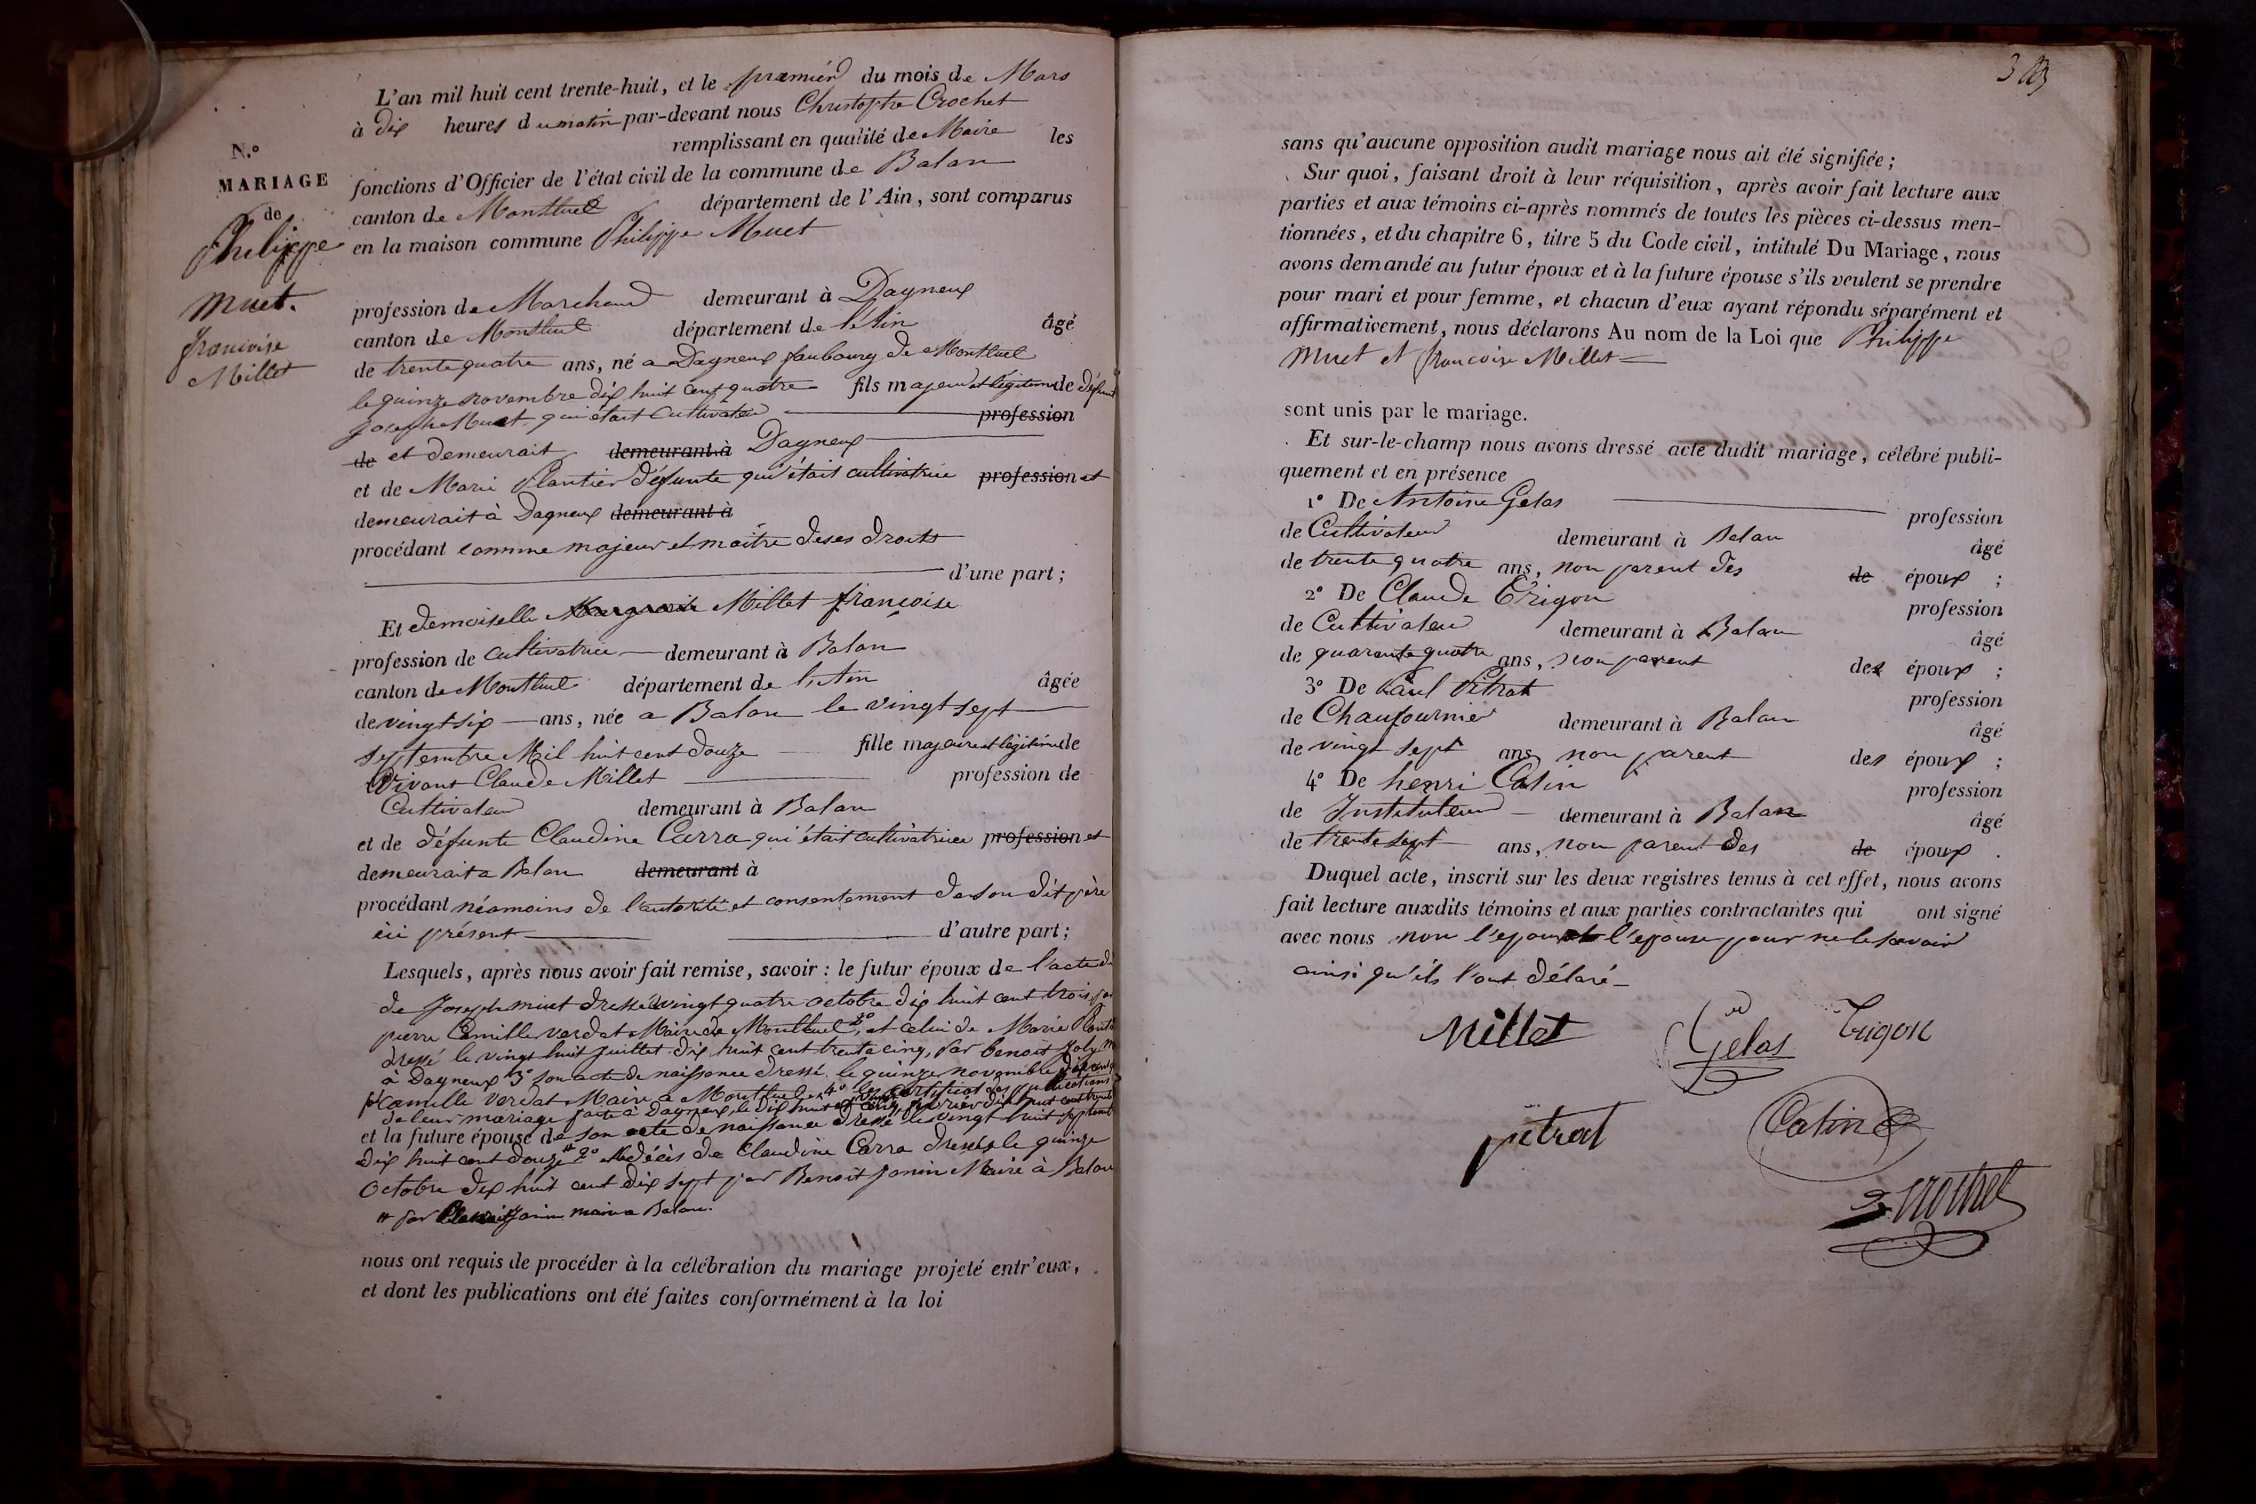 N.º
MARIAGE
de
Philippe
Muet.
françoise
Millet
L'an mil huit cent trente-huit, et le premier du mois de Mars
à dix heures du matin par-devant nous Christophe Crochet
remplissant en qualité de Maire les
fonctions d'Officier de l'état civil de la commune de Balan
canton de Montluel département de l'Ain, sont comparus
en la maison commune Philippe Muet
profession de Marchand demeurant à Dagneux
canton de Montluel département de l'Ain âgé
de trente quatre ans, né a Dagneux faubourg de Montluel
le quinze novembre dix huit cent quatre fils majeur et légitime de défunt
Joseph Muet qui était Cultivateur profession
de et demeurait demeurant à Dagneux
et de Marie Plantier défunte qui était cultivatrice profession et
demeurait à Dagneux demeurant à
procédant comme majeur et maître de ses droits
d'une part ;
Et demoiselle Millet françoise
profession de Cultivatrice demeurant à Balan
canton de Montluel département de l'Ain âgée
de vingt six ans, née a Balan le vingt sept
septembre Mil huit cent douze fille majeure et légitime de
vivant Claude Millet profession de
Cultivateur demeurant à Balan
et de défunte Claudine Carra qui était cultivatrice profession et
demeurait a Balan demeurant à
procédant néamoins de l'autorité et consentement de son dit père
ici présent d'autre part ;
Lesquels, après nous avoir fait remise, savoir : le futur époux de l'acte de
de Joseph muet dressé vingt quatre octobre dix huit cent trois par
pierre Camille verdat Maire de Montluel 2º, et celui de Marie
dressé le vingt huit juillet dix huit cent trente cinq, par benoit Joly
à Dagneux 3º son acte de naissance dressé le quinze novembre
p camille verdat Maire a Montluel 4º les certificat des publications
de leur mariage faite à Dagneux, le dix huit et vingt cinq février dix huit cent trente
et la future épouse de son acte de naissance dressé le vingt huit septembre
dix huit cent douze # 2º décès de Claudine Carra dressé le quinze
octobre dix huit cent dix sept par Benoit Janin Maire à Balan
# par Janin maire a Balan.
nous ont requis de procéder à la célébration du mariage projeté entr'eux,
et dont les publications ont été faites conformément à la loi
sans qu'aucune opposition audit mariage nous ait été signifiée ;
Sur quoi, faisant droit à leur réquisition, après avoir fait lecture aux
parties et aux témoins ci-après nommés de toutes les pièces ci-dessus men-
tionnées, et du chapitre 6, titre 5 du Code civil, intitulé Du Mariage, nous
avons demandé au futur époux et à la future épouse s'ils veulent se prendre
pour mari et pour femme, et chacun d'eux ayant répondu séparément et
affirmativement, nous déclarons Au nom de la Loi que Philippe
Muet et françoise Millet
sont unis par le mariage.
Et sur-le-champ nous avons dressé acte dudit mariage, célébré publi-
quement et en présence
1º De Antoine Gelas profession
de Cultivateur demeurant à Balan âgé
de trente quatre ans, non parent des de époux ;
2º De Claude Trigon profession
de Cultivateur demeurant à Balan âgé
de quarante quatre ans, non parent des époux ;
3º De Paul Pitrat profession
de Chaufournier demeurant à Balan âgé
de vingt sept ans, non parent des époux ;
4º De henri Catin profession
de Instituteur demeurant à Balan âgé
de trente sept ans, non parent des de époux .
Duquel acte, inscrit sur les deux registres tenus à cet effet, nous avons
fait lecture auxdits témoins et aux parties contractantes qui ont signé
avec nous non l'epoux l'epouse pour ne le savoir
ainsi qu'ils l'ont délaré
Millet
Gelas
Trigon
pitrat
Catin
Crochet